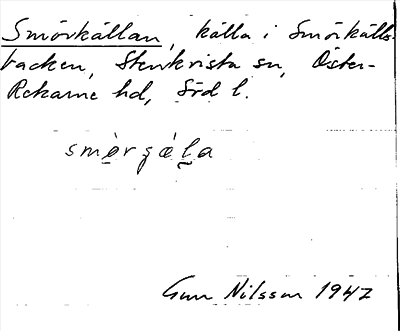 Smörkällan, källa i Smörkälls-
backen, Stenkvista sn, Öster-
Rekarne hd, Söd l.
smørgæla
Gun Nilsson 1947